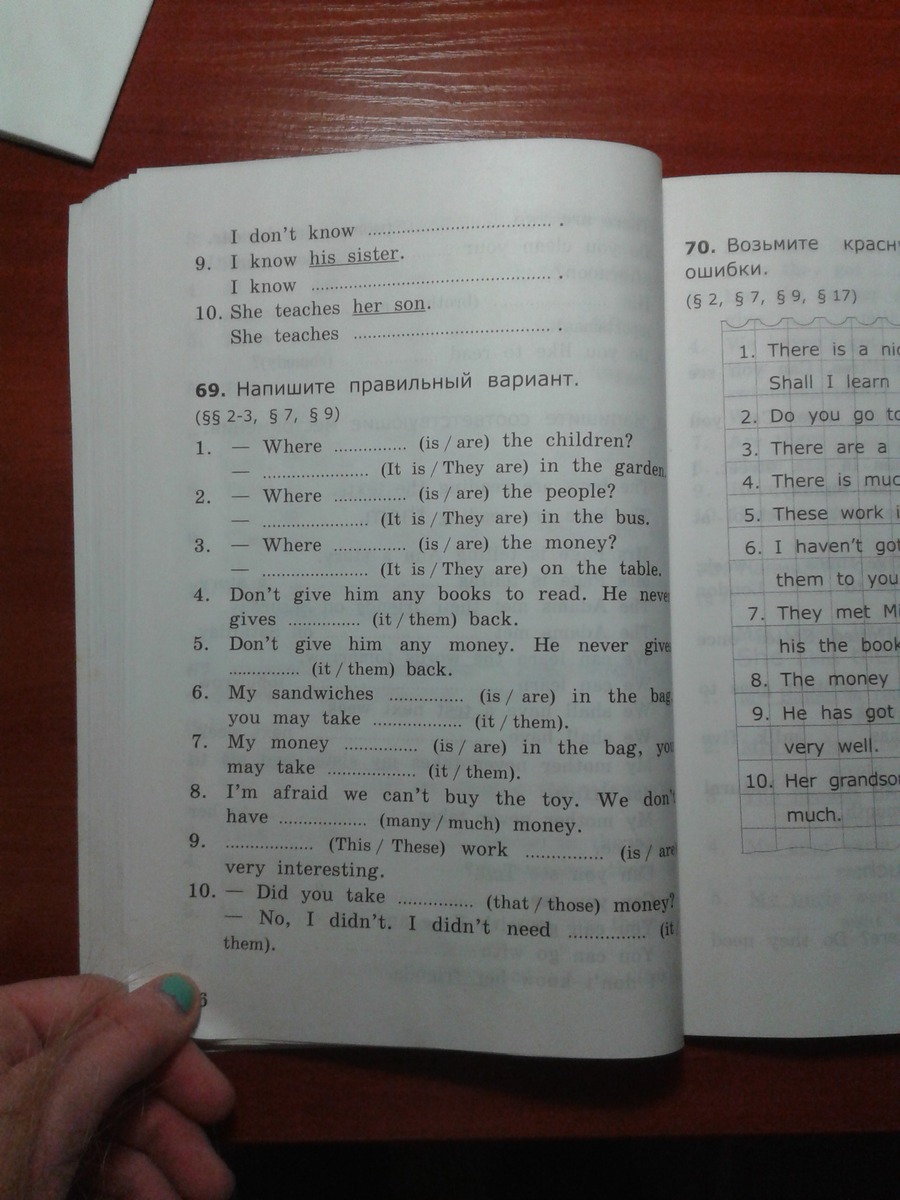 I don't know .............................................. .
9. I know his sister.
I know .............................................. .
10. She teaches her son.
She teaches .............................................. .
69. Напишите правильный вариант.
(§§ 2-3, § 7, § 9)
1. — Where .............. (is / are) the children?
— .................... (It is / They are) in the garden.
2. — Where .............. (is / are) the people?
— .................... (It is / They are) in the bus.
3. — Where .............. (is / are) the money?
— .................... (It is / They are) on the table.
4. Don't give him any books to read. He neve
gives .............. (it / them) back.
5. Don't give him any money. He never give
.............. (it / them) back.
6. My sandwiches .............. (is / are) in the bag
you may take ................. (it / them).
7. My money .............. (is / are) in the bag, you
may take ................. (it / them).
8. I'm afraid we can't buy the toy. We don't
have ................. (many / much) money.
9. ................. (This / These) work ............... (is / are
very interesting.
10. — Did you take .............. (that / those) money?
— No, I didn't. I didn't need ............... (it
them).
6
70. Возьмите красну
ошибки.
(§ 2, § 7, § 9, § 17)
1. There is a nic
Shall I learn
2. Do you go to
3. There are a
4. There is muc
5. These work i
6. I haven't got
them to you
7. They met Mi
his the book
8. The money
9. He has got
very well.
10. Her grandso
much.